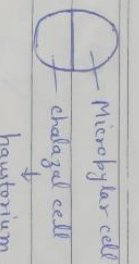 Micropylar cell
chalazal cell
↓
haustorium